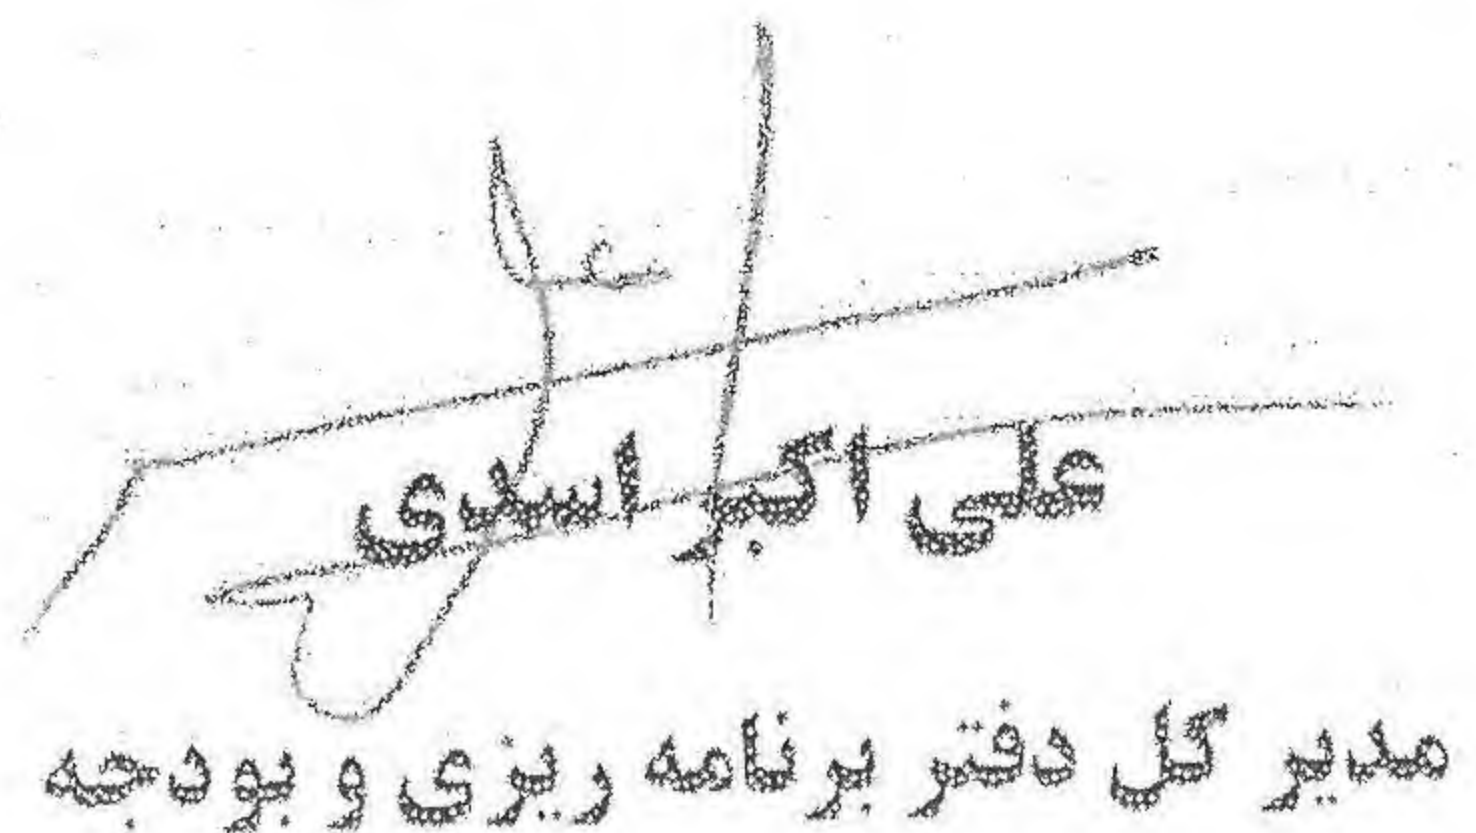 علی اکبر اسدی
مدیر کل دفتر برنامه ریزی و بودجه